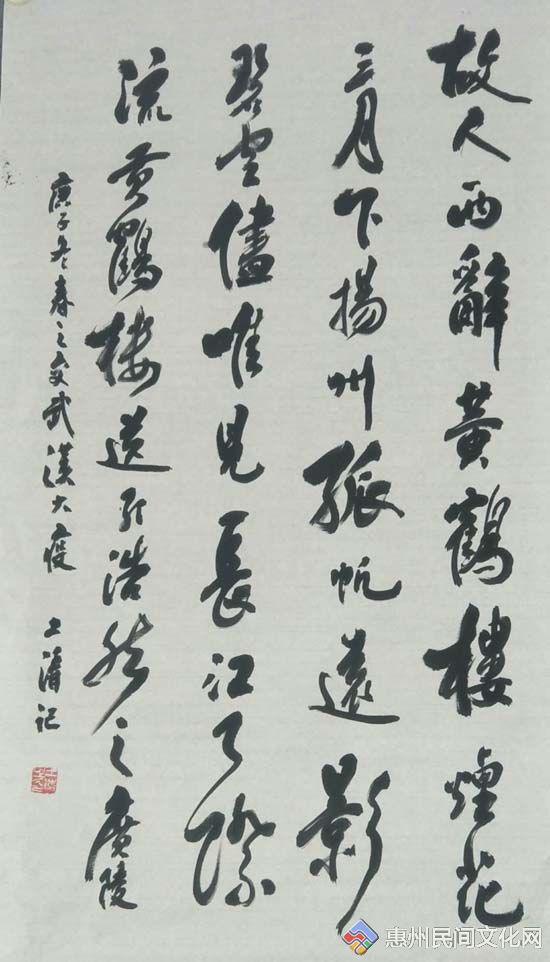 故人西辭黄鶴樓煙花
三月下揚州孤帆遠影
碧空儘唯見長江天際
流黄鶴樓送孟浩然之廣陵
庚子冬春之交武漢大疫 记
惠州民间文化网